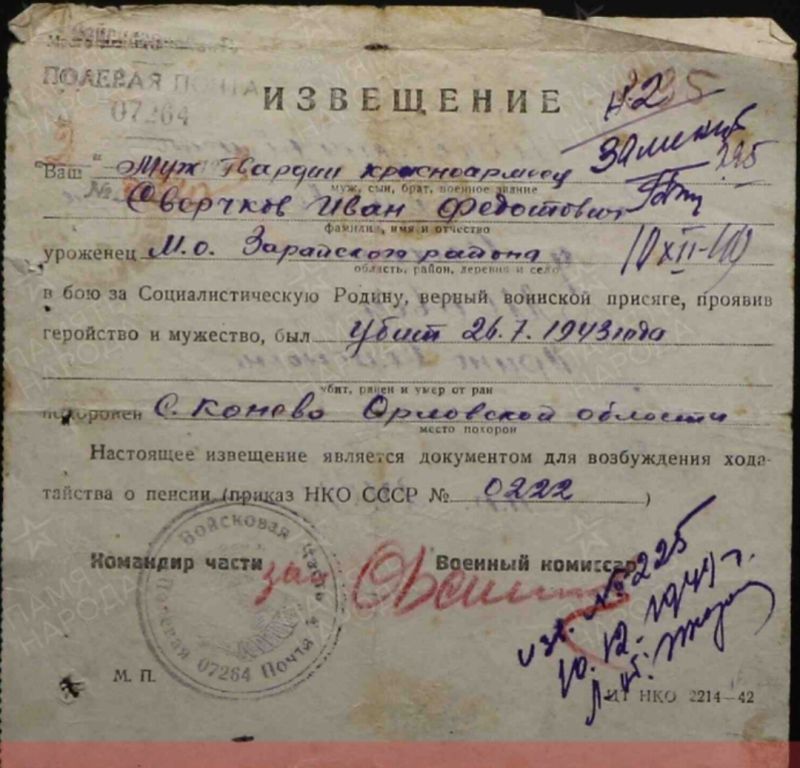 ПОЛЕВАЯ ПОЧТА
07264
ИЗВЕЩЕНИЕ
Н-2
Заменить
225
Ваш Муж Гвардии красноармеец
муж, сын, брат, военное звание
№
Сверчков Иван Федотович
фамилия, имя и отчество
уроженец М.о. Зарайского района
10 XII-44
область, район, деревня и село
в бою за Социалистическую Родину, верный воинской присяге, проявив
геройство и мужество, был убит 26.7.1943 года
убит, ранен и умер от ран
похоронен С. Конево Орловской области
место похорон
Настоящее извещение является документом для возбуждения хода-
тайства о пенсии (приказ НКО СССР № 0222 )
Командир части
Военный комиссар
Войсковая часть
07264 Почта
изв. № 225
10.12.1944 г.
М. П.
НКО 2214—42
ПАМЯТЬ НАРОДА